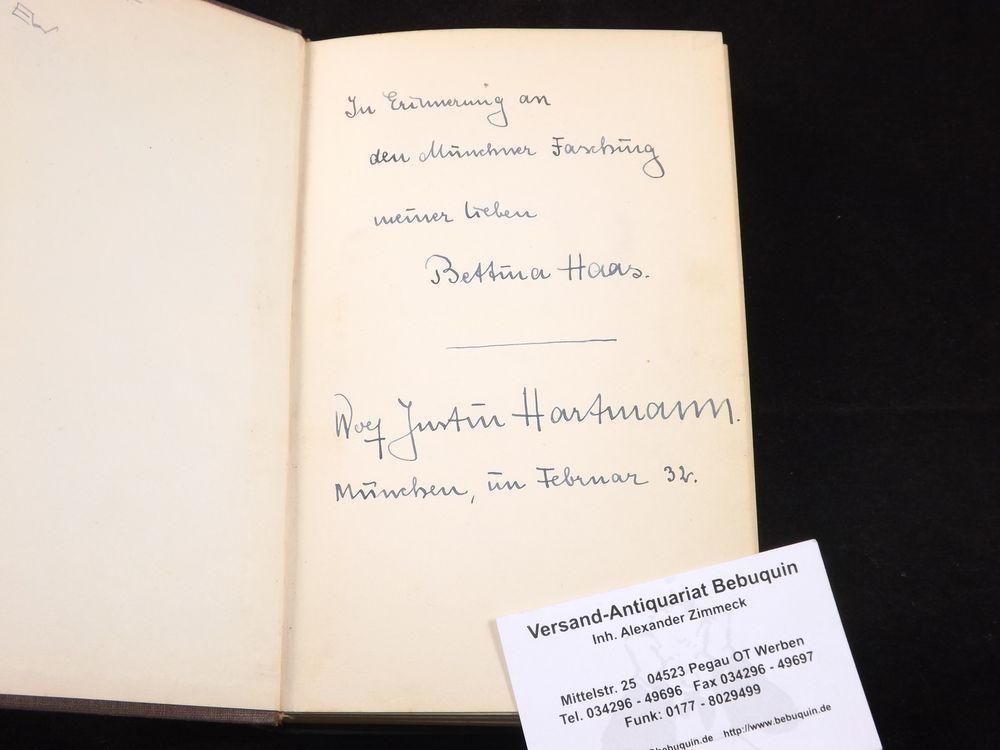 EW
In Erinnerung an
den Münchner Fasching
meiner lieben
Bettina Haas.
Wolf Justin Hartmann.
München, im Februar 32.
Versand-Antiquariat Bebuquin
Inh. Alexander Zimmeck
Mittelstr. 25 04523 Pegau OT Werben
Tel. 034296 - 49696 Fax 034296 - 49697
Funk: 0177 - 8029499
@bebuquin.de http://www.bebuquin.de